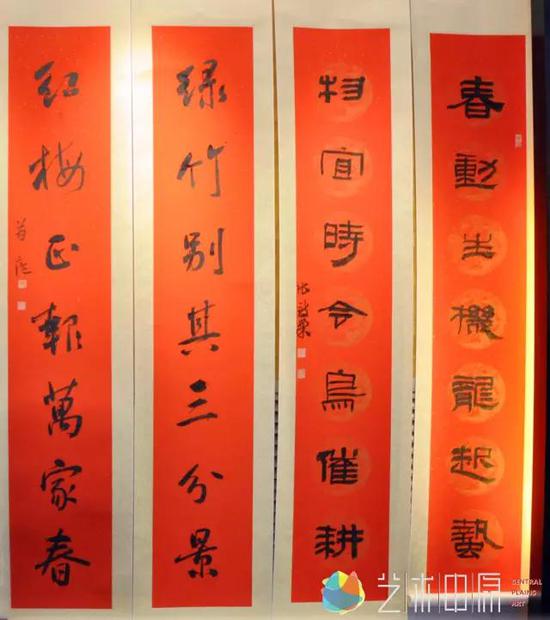 春動生機龍起蟄
物宜時令鳥催耕
綠竹別其三分景
紅梅正報萬家春
艺术中原
CENTRAL
PLAINS
ART